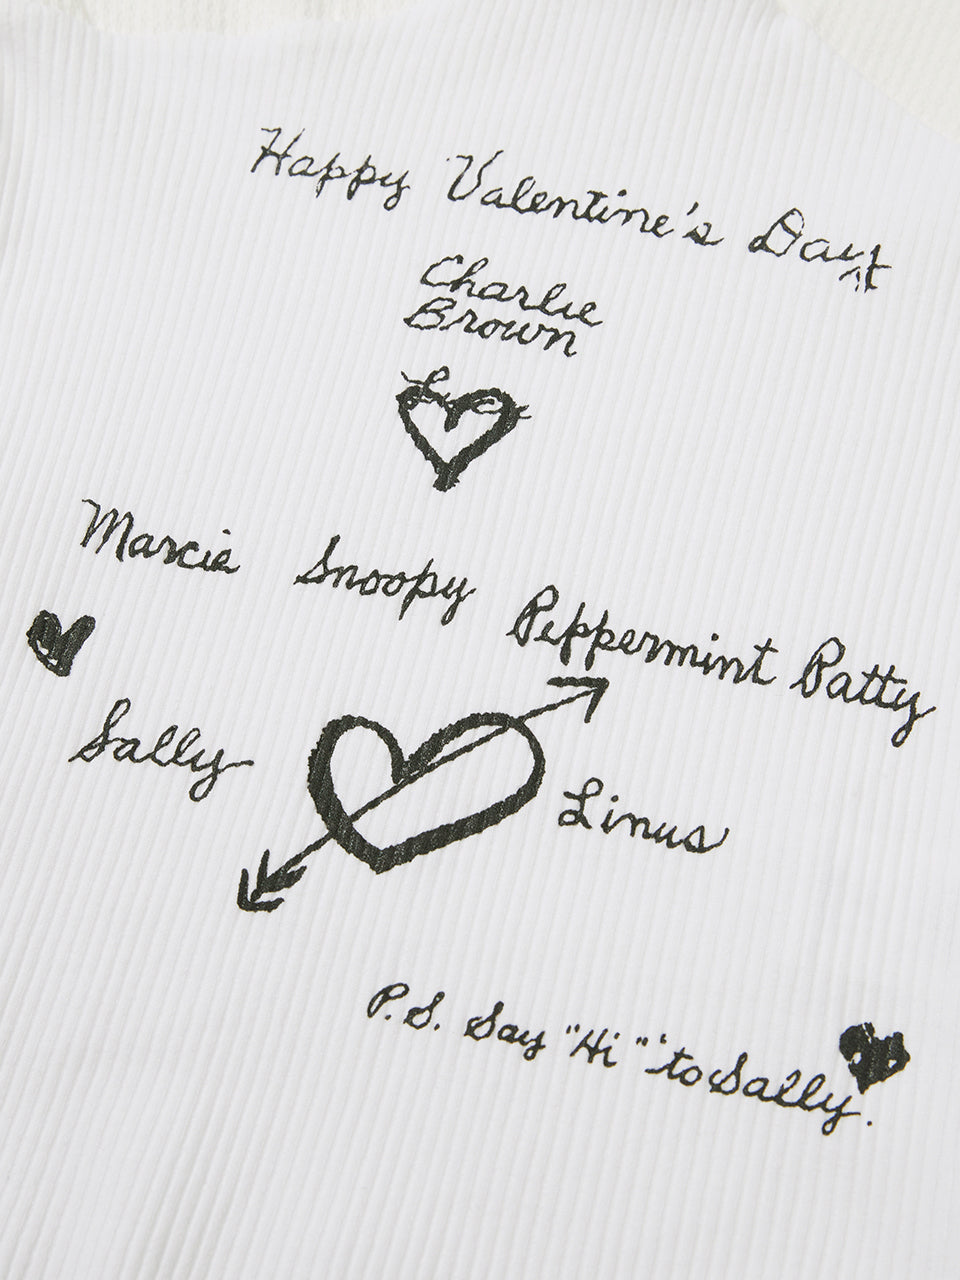 Happy Valentine's Day
Charlie
Brown
Lucy
Marcie Snoopy Peppermint Patty
Sally Linus
P.S. Say "Hi" to Sally.